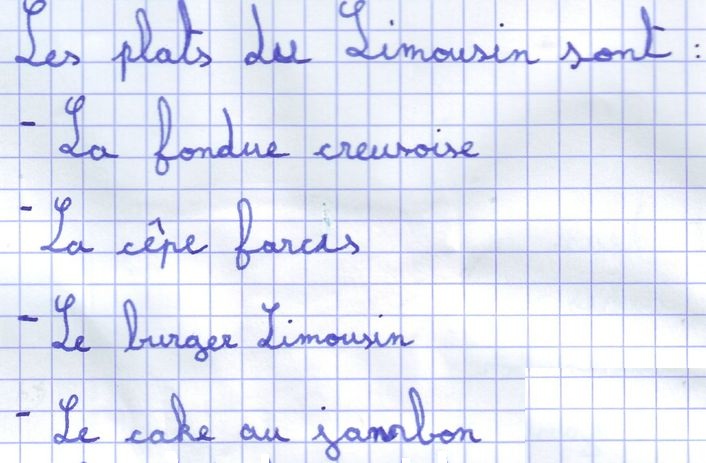 Les plats du Limousin sont :
- La fondue creusoise
- La cêpe farcis
- Le burger Limousin
- Le cake au jambon